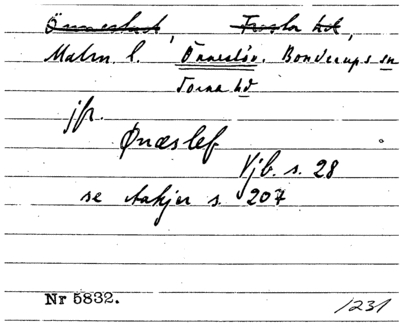 Önnestad, Frosta hd,
Malm. l. Önneslöv. Bonderups sn
Torna hd
jfr.
Ønæslef
Vjb. s. 28
se Aakjer s. 207
Nr 5832.
1231